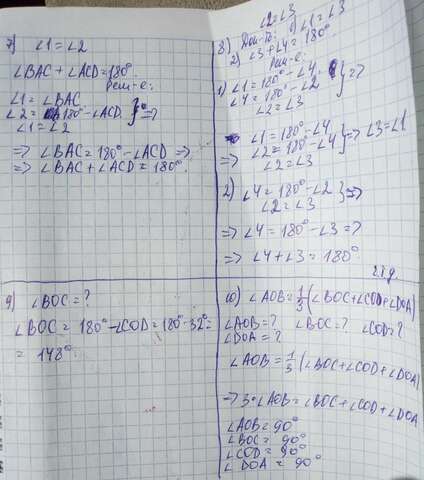 7) ∠1 = ∠2
∠BAC + ∠ACD = 180°.
Реш-е:
∠1 = ∠BAC
∠2 = 180° - ∠ACD } =>
∠1 = ∠2
=> ∠BAC = 180° - ∠ACD =>
=> ∠BAC + ∠ACD = 180°.
8) ∠2 = ∠3
Док-ть: 1) ∠1 = ∠3
2) ∠3 + ∠4 = 180°
Реш-е:
1) ∠1 = 180° - ∠4
∠4 = 180° - ∠2 } =>
∠2 = ∠3
∠1 = 180° - ∠4
=> ∠2 = 180° - ∠4 } => ∠3 = ∠1
∠2 = ∠3
2) ∠4 = 180° - ∠2 } =>
∠2 = ∠3
=> ∠4 = 180° - ∠3 = ?
=> ∠4 + ∠3 = 180°.
ч.т.д.
9) ∠BOC = ?
∠BOC = 180° - ∠COD = 180° - 32° =
= 148°.
10) ∠AOB = 1/3 (∠BOC + ∠COD + ∠DOA)
∠AOB = ? ∠BOC = ? ∠COD = ?
∠DOA = ?
∠AOB = 1/3 (∠BOC + ∠COD + ∠DOA)
=> 3·∠AOB = ∠BOC + ∠COD + ∠DOA
∠AOB = 90°
∠BOC = 90°
∠COD = 90°
∠DOA = 90°